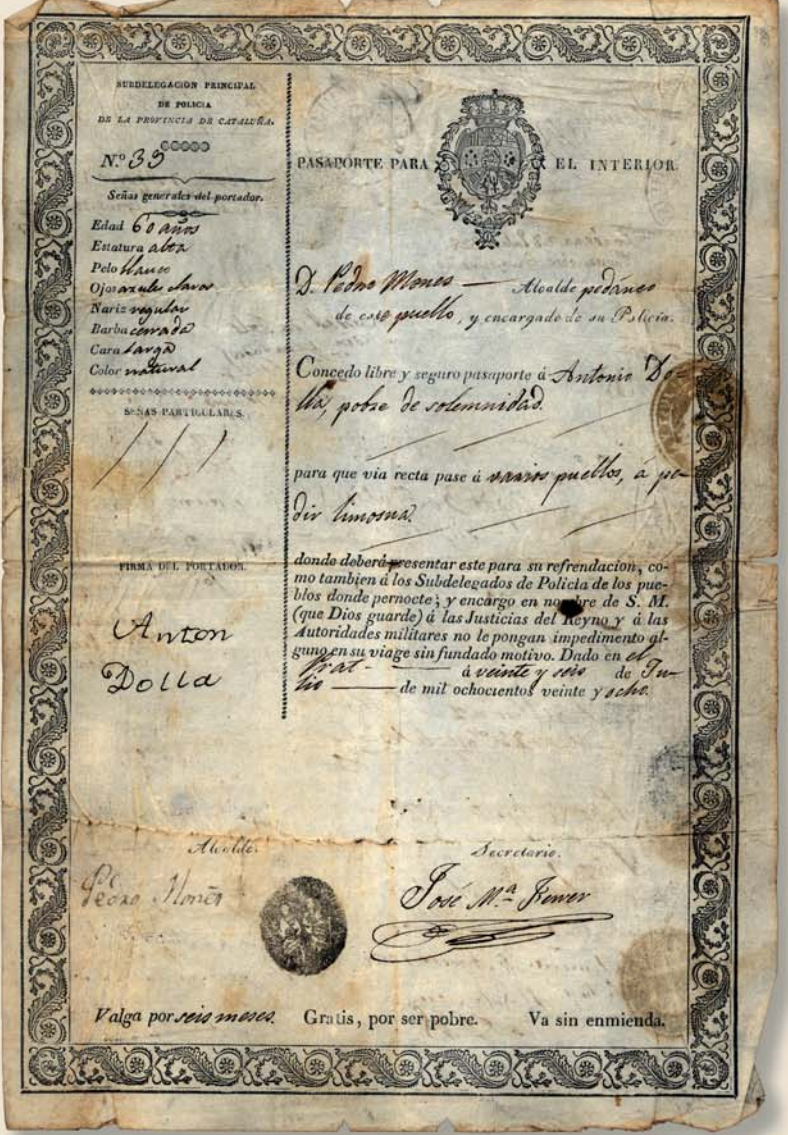 SUBDELEGACION PRINCIPAL
DE POLICIA
DE LA PROVINCIA DE CATALUÑA.
N.º 39
Señas generales del portador.
Edad 60 años
Estatura alta
Pelo blanco
Ojos azules claros
Nariz regular
Barba cerrada
Cara larga
Color natural
SEÑAS PARTICULARES.
FIRMA DEL PORTADOR.
Anton
Dolla
PASAPORTE PARA EL INTERIOR.
D. Pedro Mones Alcalde pedáneo
de este puello, y encargado de su Policía.
Concedo libre y seguro pasaporte á Antonio Do-
lla, pobre de solemnidad.
para que via recta pase á varios puellos, á pe-
dir limosna.
donde deberá presentar este para su refrendacion, co-
mo tambien á los Subdelegados de Policía de los pue-
blos donde pernocte; y encargo en nombre de S. M.
(que Dios guarde) á las Justicias del Reyno y á las
Autoridades militares no le pongan impedimento al-
guno en su viage sin fundado motivo. Dado en el
Prat á veinte y seis de Ju-
lio de mil ochocientos veinte y ocho.
Alcalde.
Pedro Mones
Secretario.
José M.ª Ferrer
Valga por seis meses. Gratis, por ser pobre. Va sin enmienda.